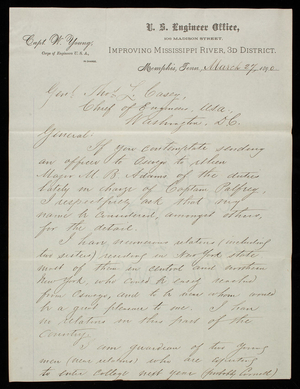 U. S. Engineer Office,
MADISON STREET.
Capt. W. Young,
Corps of Engineers U.S.A.,
IMPROVING MISSISSIPPI RIVER, 3D DISTRICT.
Memphis, Tenn., March 27, 1890
Genl. Thos. L. Casey,
Chief of Engineers, USA.
Washington, D.C.
General:
If you contemplate sending
an officer to Oswego to relieve
Major M. B. Adams of the duties
lately in charge of Captain Palfrey,
I respectfully ask that my
name be considered, amongst others,
for the detail.
I have numerous relatives (including
two sisters) residing in New York state
most of them in central and northern
New York, who could be easily reached
from Oswego, and to be near whom would
be a great pleasure to me. I have
no relatives in this part of the
country.
I am guardian of two young
men (near relatives) who are expecting
to enter college next year (probably Cornell)